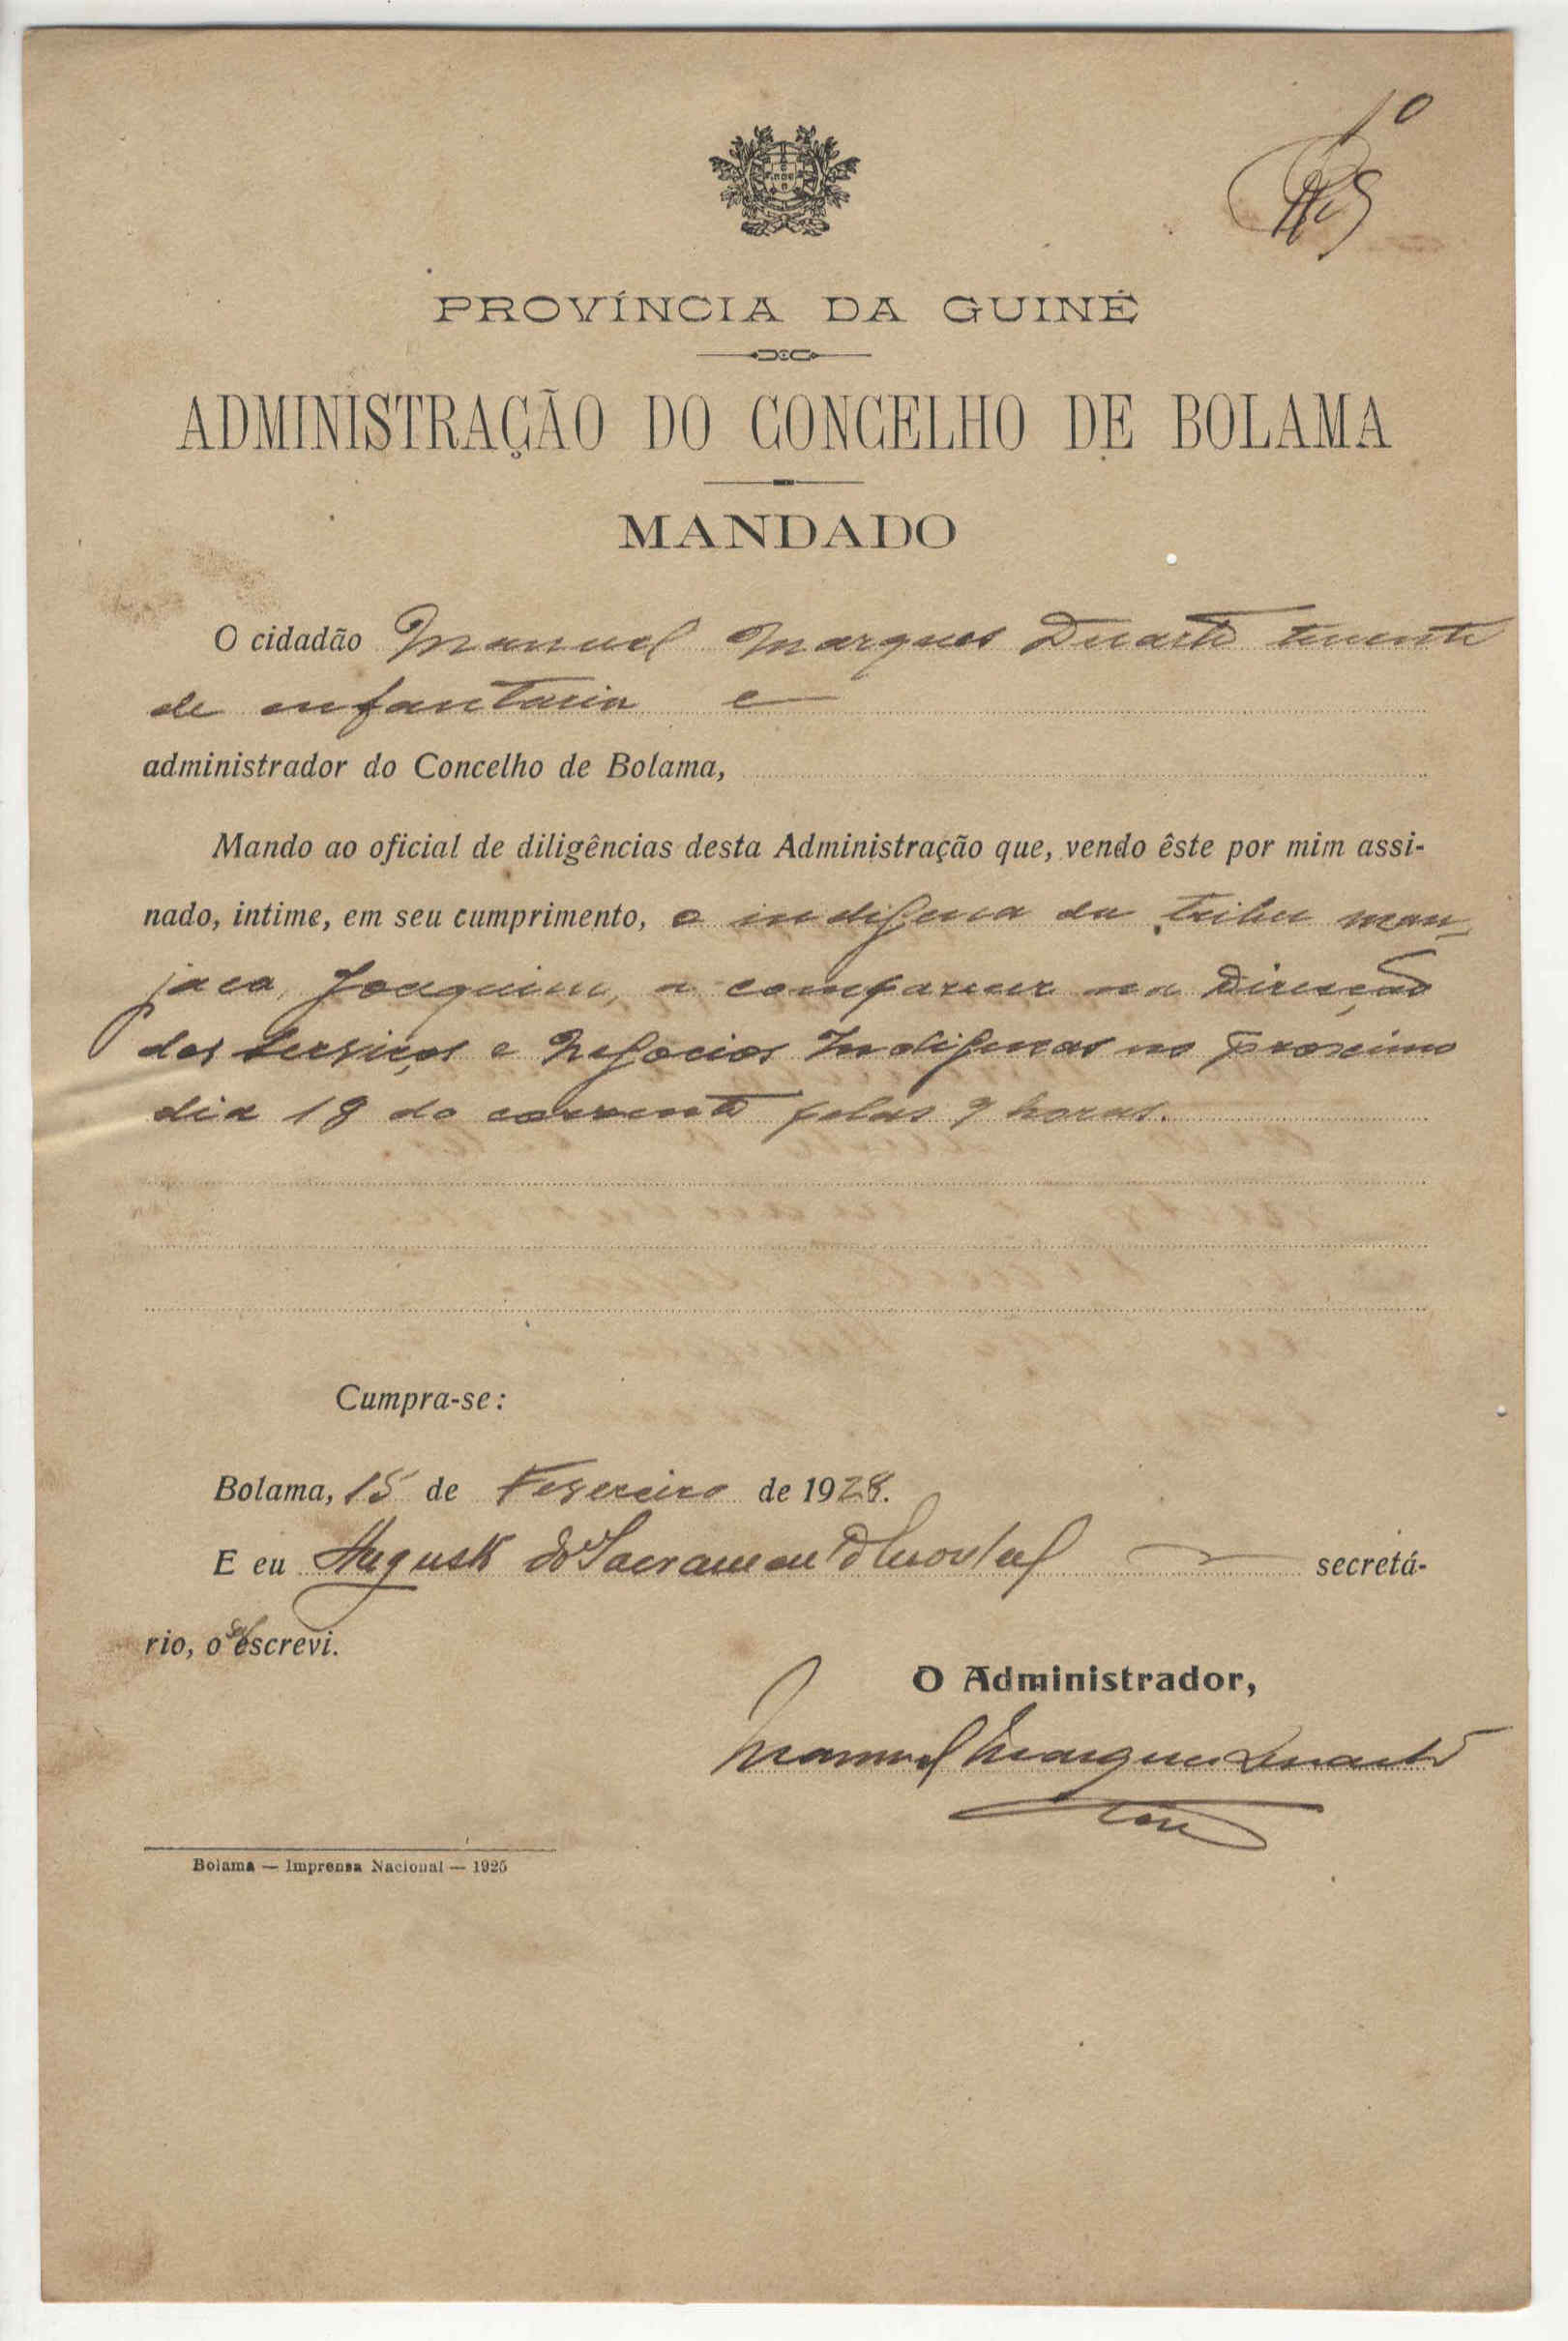 PROVÍNCIA DA GUINÉ
ADMINISTRAÇÃO DO CONCELHO DE BOLAMA
MANDADO
O cidadão Manuel Marques Duarte tenente
de enfantaria e
administrador do Concelho de Bolama,
Mando ao oficial de diligências desta Administração que, vendo êste por mim assi-
nado, intime, em seu cumprimento, o indigena da tribu man-
jaca, Joaquim, a comparecer na Direcção
dos Serviços e Negocios Indigenas no proximo
dia 18 do corrente pelas 9 horas.
Cumpra-se:
Bolama, 15 de Fevereiro de 1928.
E eu Augusto do Sacramento secretá-
rio, o escrevi.
O Administrador,
Manuel Marques Duarte
Ten
Bolama — Imprensa Nacional — 1925